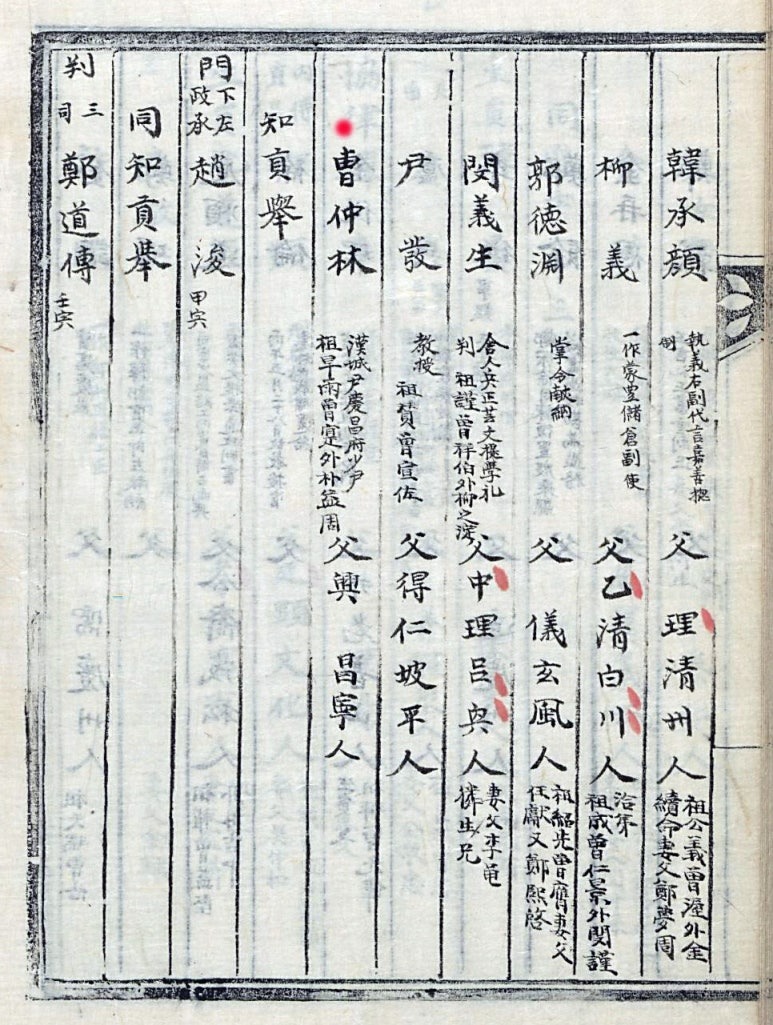 韓承顔 執義右副代言嘉善揔制 父理清州人 祖公義曾渥外金續命妻父鄭夢周
柳義 一作蒙豊儲倉副使 父乙清白川人 洽茅祖成曾仁景外閔謹
郭德淵 掌令献納 父儀玄風人 祖紹先曾膺妻父任獻又鄭熙啓
閔義生 舍人兵正芸文提學礼判 祖謹曾祥伯外柳之淀 父中理呂興人 妻父李黽 㤚生兄
尹發 教授 祖賛曾宣佐 父得仁坡平人
曹仲林 漢城尹慶昌府少尹 祖早雨曾寔外朴益周 父興昌寧人
知貢舉
門下左政丞趙浚 甲寅
同知貢舉
判三司鄭道傳 壬寅